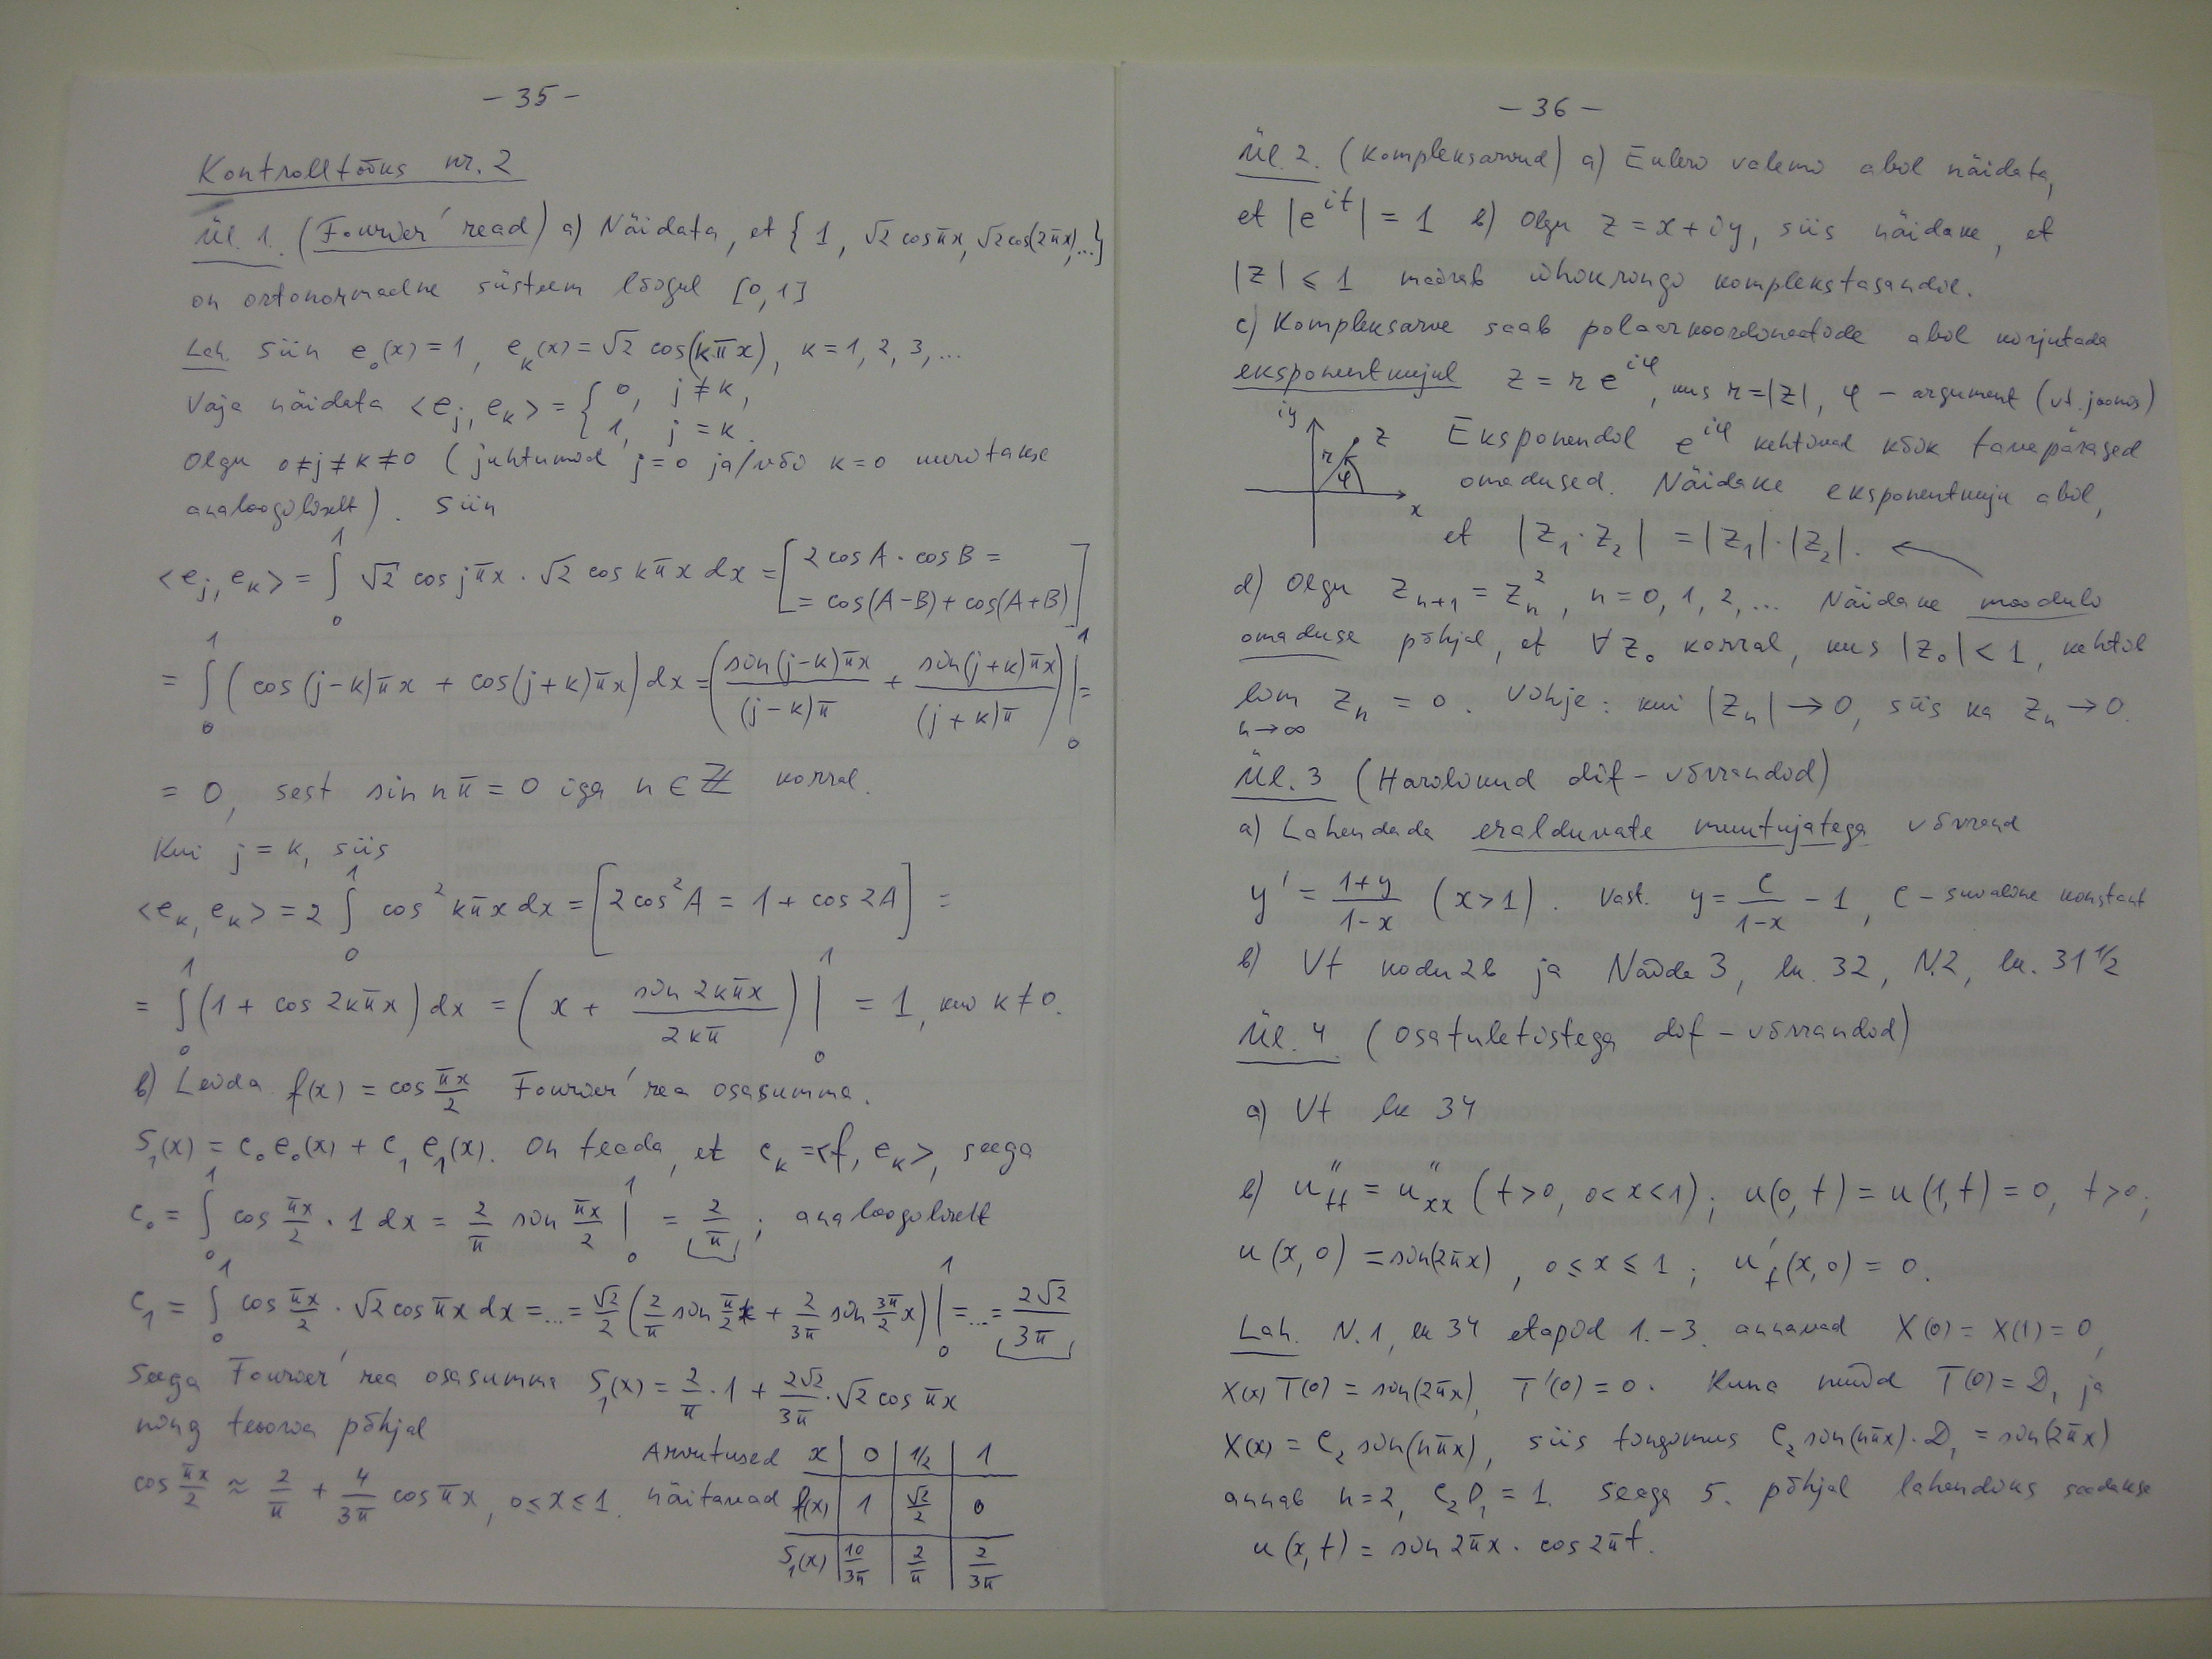 – 35 –
Kontrolltööks nr. 2
Ül. 1. (Fourier' read) a) Näidata, et {1, √2 cos πx, √2 cos(2πx), ...}
on ortonormaalne süsteem lõigul [0,1]
Lah. Siin e₀(x) = 1, eₖ(x) = √2 cos(kπx), k = 1, 2, 3, ...
Vaja näidata <eⱼ, eₖ> = { 0, j ≠ k, 1, j = k.
Olgu 0≠j≠k≠0 (juhtumid j=0 ja/või k=0 uuritakse
analoogiliselt). Siin
<eⱼ, eₖ> = ∫₀¹ √2 cos jπx · √2 cos kπx dx = [2 cos A · cos B = = cos(A−B) + cos(A+B)]
= ∫₀¹ (cos(j−k)πx + cos(j+k)πx) dx = (sin(j−k)πx / (j−k)π + sin(j+k)πx / (j+k)π) |₀¹ =
= 0, sest sin nπ = 0 iga n ∈ ℤ korral.
Kui j = k, siis
<eₖ, eₖ> = 2 ∫₀¹ cos² kπx dx = [2 cos² A = 1 + cos 2A] =
= ∫₀¹ (1 + cos 2kπx) dx = (x + sin 2kπx / 2kπ) |₀¹ = 1, kui k ≠ 0.
b) Leida f(x) = cos πx/2 Fourier' rea osasumma.
S₁(x) = c₀e₀(x) + c₁e₁(x). On teada, et cₖ = <f, eₖ>, seega
c₀ = ∫₀¹ cos πx/2 · 1 dx = 2/π sin πx/2 |₀¹ = 2/π ; analoogiliselt
c₁ = ∫₀¹ cos πx/2 · √2 cos πx dx = ... = √2/2 (2/π sin π/2 x + 2/3π sin 3π/2 x) |₀¹ = ... = 2√2/3π
Seega Fourier' rea osasumma S₁(x) = 2/π · 1 + 2√2/3π · √2 cos πx
ning teooria põhjal
cos πx/2 ≈ 2/π + 4/3π cos πx, 0 ≤ x ≤ 1.
Arvutused näitavad
x | 0 | 1/2 | 1
f(x) | 1 | √2/2 | 0
S₁(x) | 10/3π | 2/π | 2/3π
– 36 –
Ül. 2. (Kompleksarvud) a) Euleri valemi abil näidata,
et |e^{it}| = 1 b) Olgu z = x + iy, siis näidake, et
|z| ≤ 1 määrab ühikringi komplekstasandil.
c) Kompleksarve saab polaarkoordinaatide abil kirjutada
eksponentkujul z = r e^{iφ}, kus r = |z|, φ – argument (vt. joonis)
iy
z
r
φ
x
Eksponendil e^{iφ} kehtivad kõik tavapärased
omadused. Näidake eksponentkuju abil,
et |z₁ · z₂| = |z₁| · |z₂|.
d) Olgu zₙ₊₁ = zₙ², n = 0, 1, 2, ... Näidake mooduli
omaduse põhjal, et ∀ z₀ korral, kus |z₀| < 1, kehtib
lim n→∞ zₙ = 0. Vihje: kui |zₙ| → 0, siis ka zₙ → 0.
Ül. 3 (Harilikud dif – võrrandid)
a) Lahendada eralduvate muutujatega võrrand
y' = (1+y)/(1−x) (x > 1). Vast. y = C/(1−x) − 1, C – suvaline konstant
b) Vt kodu 2b ja Näide 3, lk. 32, N.2, lk. 31 1/2
Ül. 4. (Osatuletistega dif – võrrandid)
a) Vt lk 34
b) u''ₜₜ = u''ₓₓ (t > 0, 0 < x < 1); u(0, t) = u(1, t) = 0, t > 0;
u(x, 0) = sin(2πx), 0 ≤ x ≤ 1; u'ₜ(x, 0) = 0.
Lah. N. 1, lk 34 etapid 1. – 3. annavad X(0) = X(1) = 0,
X(x) T(0) = sin(2πx), T'(0) = 0. Kuna nüüd T(0) = D₁ ja
X(x) = C₂ sin(nπx), siis tingimus C₂ sin(nπx) · D₁ = sin(2πx)
annab n = 2, C₂D₁ = 1. Seega 5. põhjal lahendiks saadakse
u(x, t) = sin 2πx · cos 2πt.